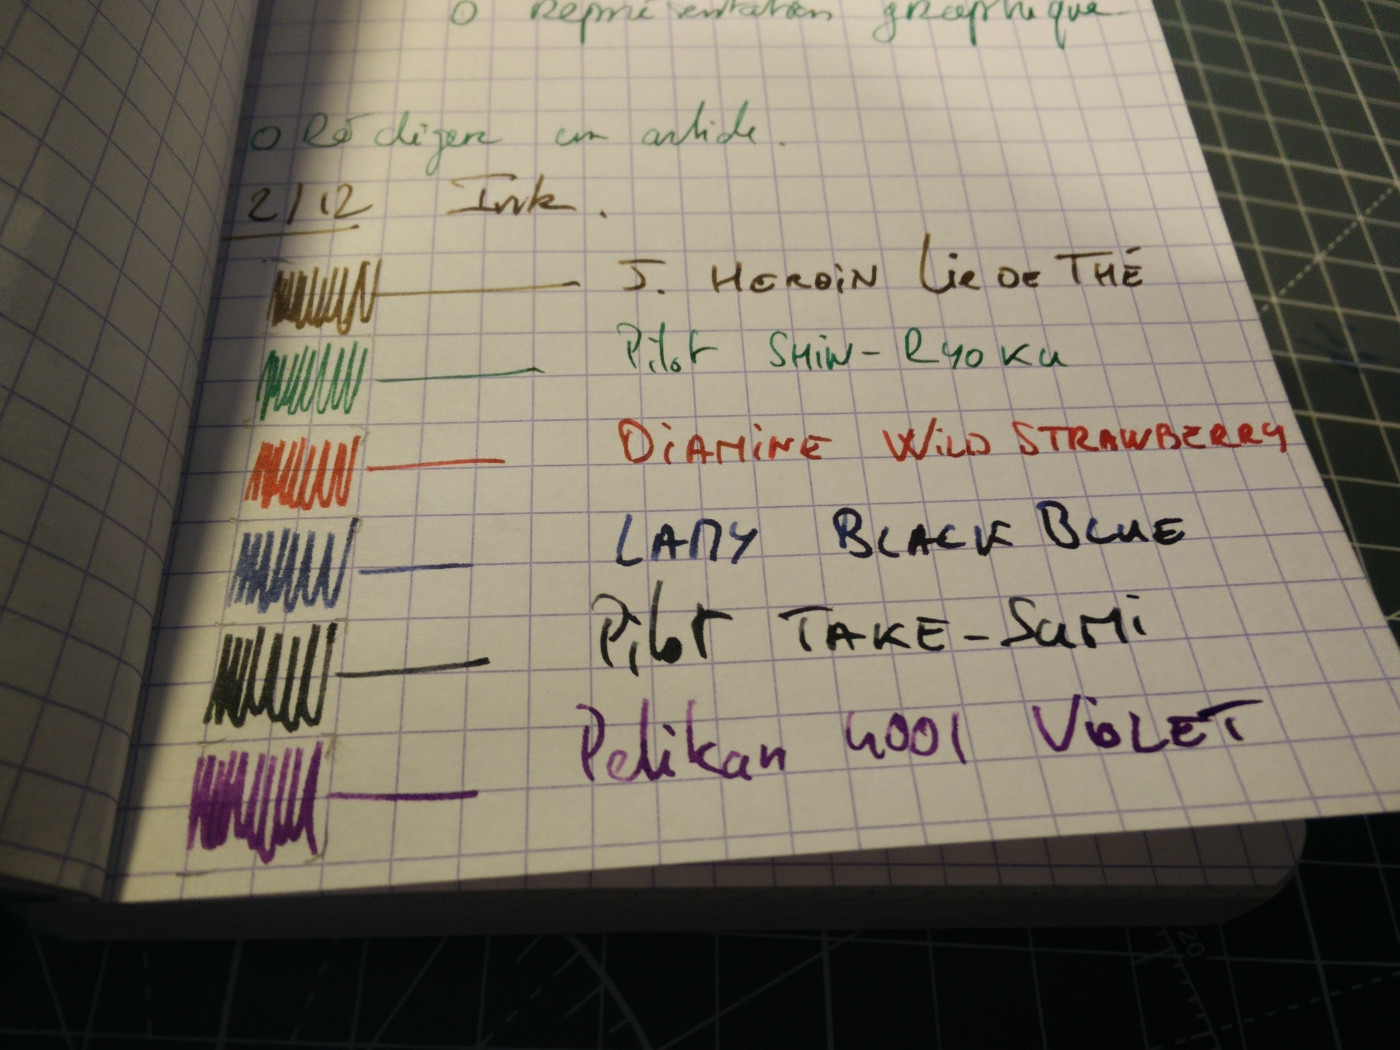 o Représentation graphique
o Rédiger un article.
2/12 Ink.
J. HERBIN Lie DE THÉ
Pilot SHIN-RYOKU
DIAMINE WILD STRAWBERRY
LAMY BLACK BLUE
Pilot TAKE-SUMI
Pelikan 4001 VIOLET
20